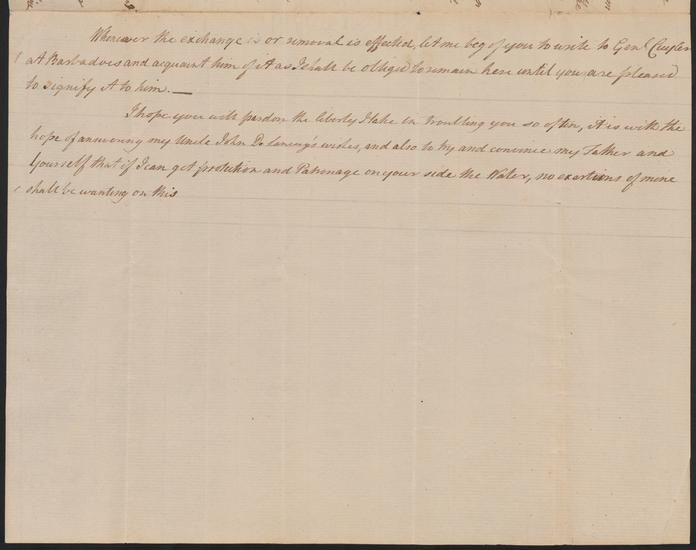 Whenever the exchange is or removal is effected, let me beg of you to write to Genl Cuyler
At Barbadoes and acquaint him of it as I shall be obliged to remain here until you are pleased
to signify it to him. —
I hope you will pardon the liberty I take in troubling you so often, it is with the
hope of answering my Uncle John De Lancey's wishes, and also to try and convince my Father and
Yourself that if I can get protection and Patronage on your side the Water, no exertions of mine
shall be wanting on this